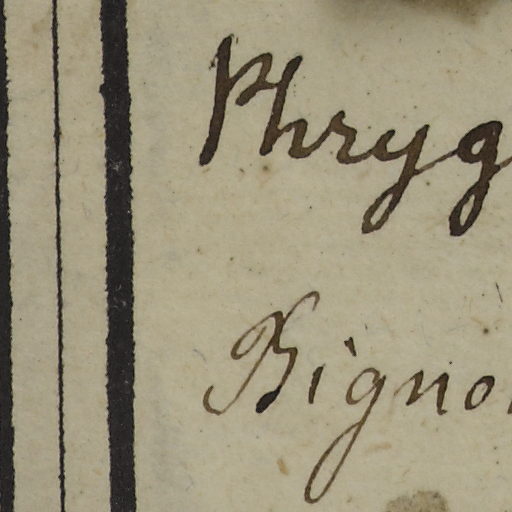 Phryg
Bigno